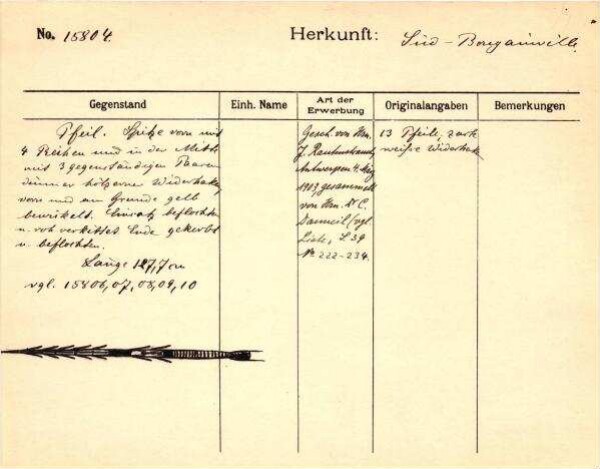 No. 15804.
Herkunft: Süd-Bougainville
Gegenstand
Einh. Name
Art der Erwerbung
Originalangaben
Bemerkungen
Pfeil. Spitze vorn mit
4 Reihen und in der Mitte
mit 3 gegenständigen Paaren
dünner hölzerner Widerhaken,
vorn und am Grunde gelb
bewickelt. Einsatz beflochten
u. rot verkittet. Ende gekerbt
u. beflochten.
Länge 127,7 cm
vgl. 15806, 07, 08, 09, 10
Gesch. von Hrn.
J. Rautenstrauch,
Antwerpen 4. Mrz
1913 gesammelt
von Hrn. Dr. C.
(vgl.
Liste, S. 39
No 222-234.
13 Pfeile, zark
weiße Widerhak.